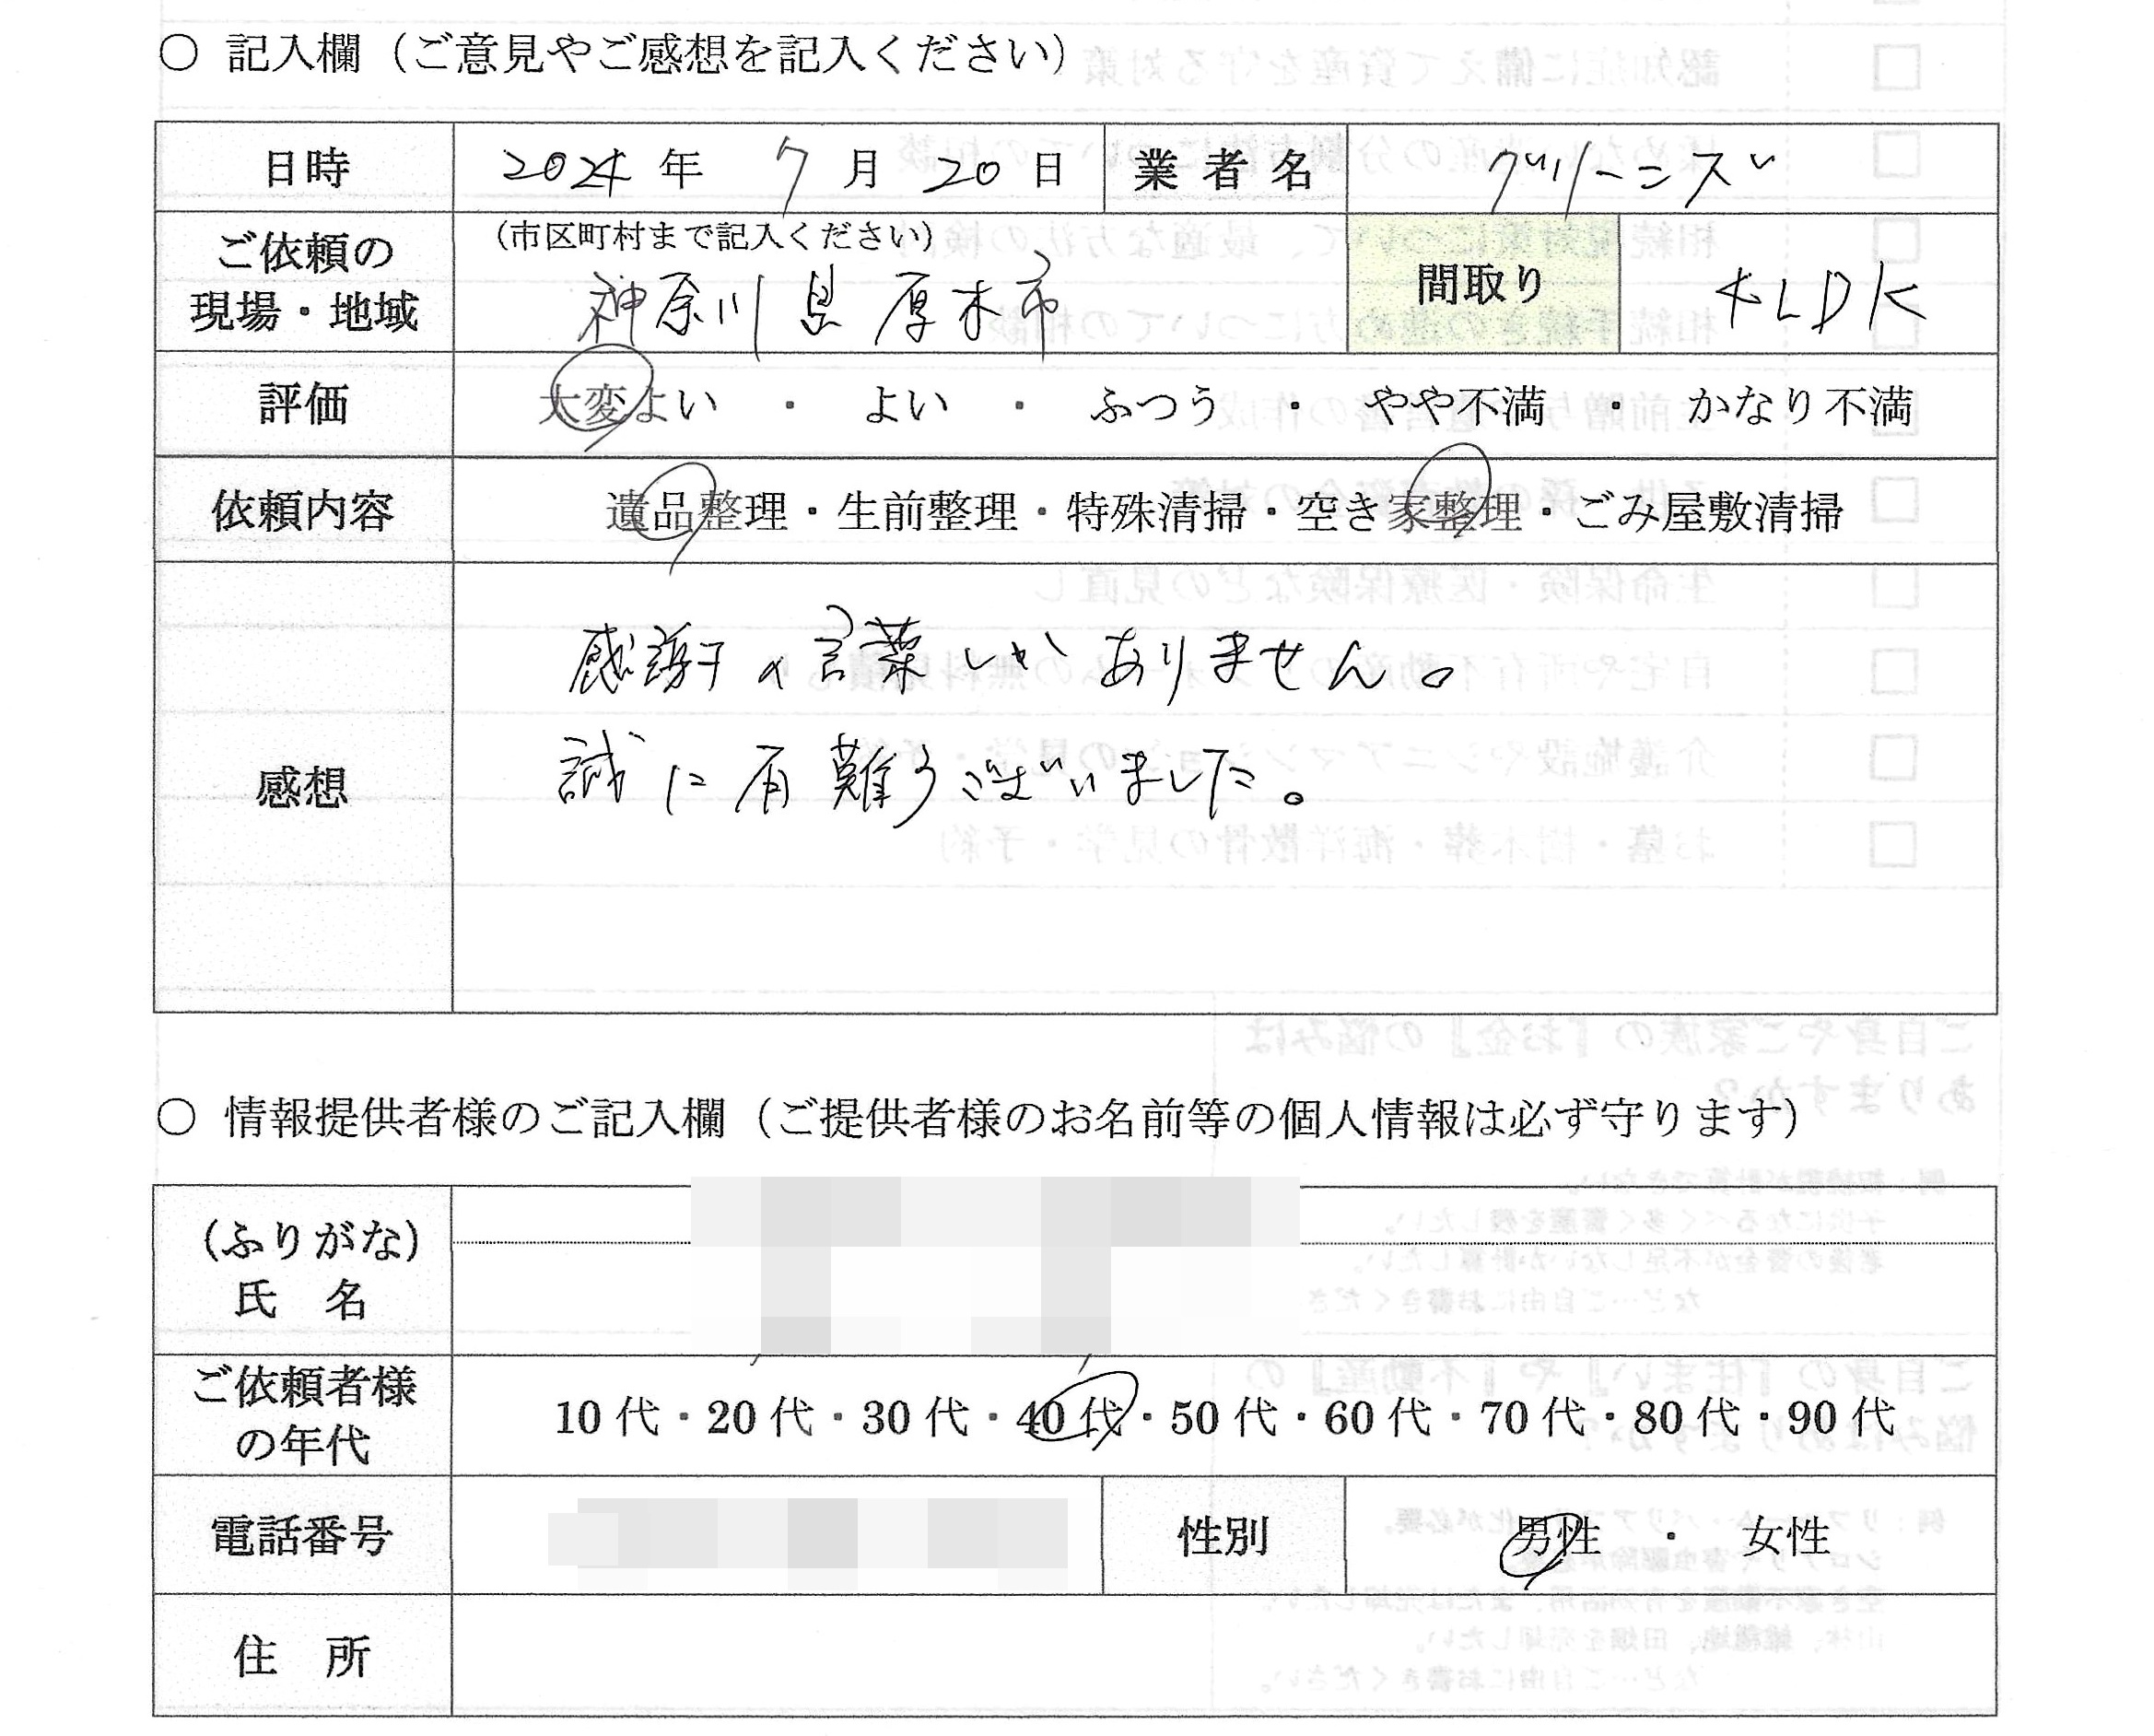 ○ 記入欄（ご意見やご感想を記入ください）
日時 2024 年 7 月 20 日 業者名 グリーンズ
ご依頼の現場・地域 （市区町村まで記入ください） 間取り
神奈川県厚木市 4LDK
評価 大変よい ・ よい ・ ふつう ・ やや不満 ・ かなり不満
依頼内容 遺品整理・生前整理・特殊清掃・空き家整理・ごみ屋敷清掃
感想
感謝の言葉しかありません。
誠に有難うございました。
○ 情報提供者様のご記入欄（ご提供者様のお名前等の個人情報は必ず守ります）
（ふりがな）
氏 名
ご依頼者様の年代 10代・20代・30代・40代・50代・60代・70代・80代・90代
電話番号 性別 男性 ・ 女性
住 所